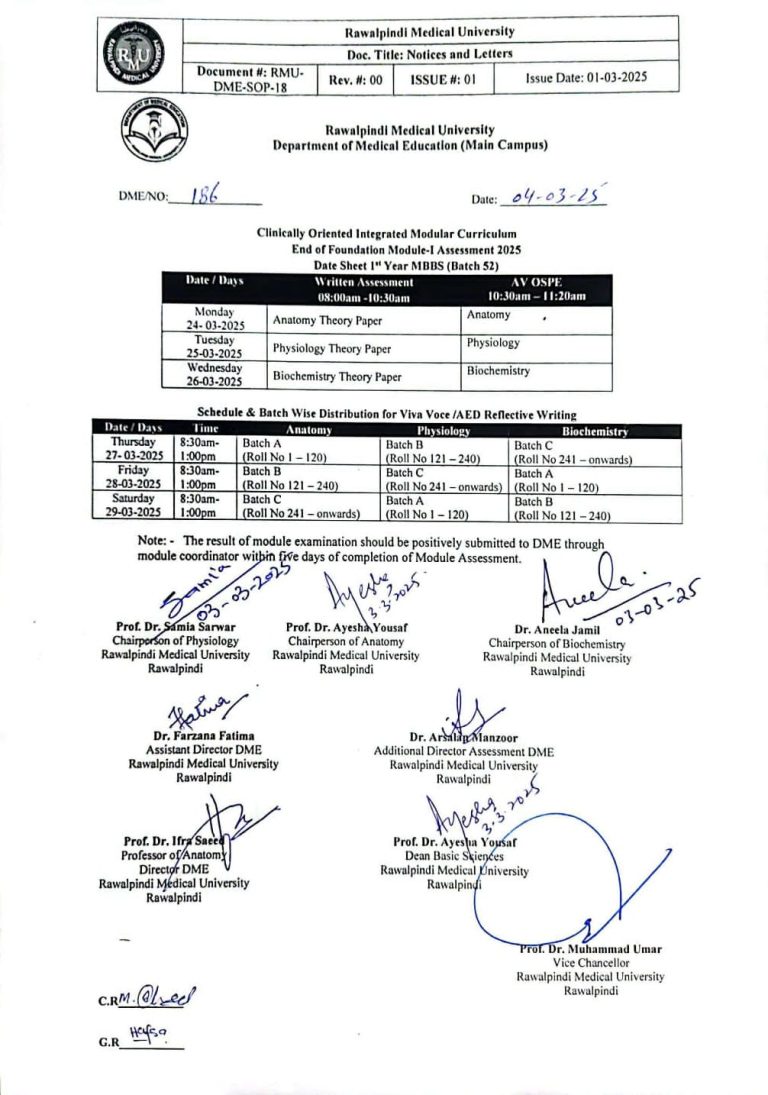 Rawalpindi Medical University
Doc. Title: Notices and Letters
Document #: RMU-DME-SOP-18 Rev. #: 00 ISSUE #: 01 Issue Date: 01-03-2025
RMU
Rawalpindi Medical University
Department of Medical Education (Main Campus)
DME/NO: 186 Date: 04-03-25
Clinically Oriented Integrated Modular Curriculum
End of Foundation Module-I Assessment 2025
Date Sheet 1st Year MBBS (Batch 52)
Date / Days Written Assessment AV OSPE
08:00am -10:30am 10:30am – 11:20am
Monday
24- 03-2025 Anatomy Theory Paper Anatomy
Tuesday
25-03-2025 Physiology Theory Paper Physiology
Wednesday
26-03-2025 Biochemistry Theory Paper Biochemistry
Schedule & Batch Wise Distribution for Viva Voce /AED Reflective Writing
Date / Days Time Anatomy Physiology Biochemistry
Thursday 8:30am- Batch A Batch B Batch C
27- 03-2025 1:00pm (Roll No 1 – 120) (Roll No 121 – 240) (Roll No 241 – onwards)
Friday 8:30am- Batch B Batch C Batch A
28-03-2025 1:00pm (Roll No 121 – 240) (Roll No 241 – onwards) (Roll No 1 – 120)
Saturday 8:30am- Batch C Batch A Batch B
29-03-2025 1:00pm (Roll No 241 – onwards) (Roll No 1 – 120) (Roll No 121 – 240)
Note: - The result of module examination should be positively submitted to DME through
module coordinator within five days of completion of Module Assessment.
Samia Ayesha Aneela.
03-03-2025 3.3.2025 03-03-25
Prof. Dr. Samia Sarwar Prof. Dr. Ayesha Yousaf Dr. Aneela Jamil
Chairperson of Physiology Chairperson of Anatomy Chairperson of Biochemistry
Rawalpindi Medical University Rawalpindi Medical University Rawalpindi Medical University
Rawalpindi Rawalpindi Rawalpindi
Dr. Farzana Fatima Dr. Arsalan Manzoor
Assistant Director DME Additional Director Assessment DME
Rawalpindi Medical University Rawalpindi Medical University
Rawalpindi Rawalpindi
Ayesha
3.3.2025
Prof. Dr. Ifra Saeed Prof. Dr. Ayesha Yousaf
Professor of Anatomy Dean Basic Sciences
Director DME Rawalpindi Medical University
Rawalpindi Medical University Rawalpindi
Rawalpindi
Prof. Dr. Muhammad Umar
Vice Chancellor
Rawalpindi Medical University
Rawalpindi
C.R
G.R